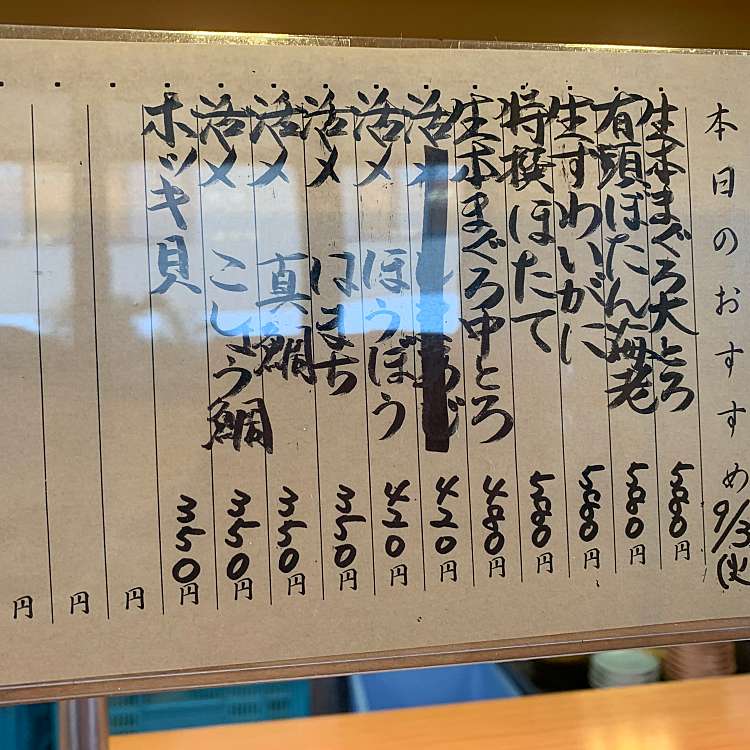 本日のおすすめ 9/3(火)
生本まぐろ大とろ 580円
有頭ぼたん海老 580円
生ずわいがに 580円
特撰ほたて 580円
生本まぐろ中とろ 480円
活〆 しまあじ 420円
活〆 ほうぼう 420円
活〆 はまち 350円
活〆 真鯛 350円
活〆 こしょう鯛 350円
ホッキ貝 350円
円
円
円